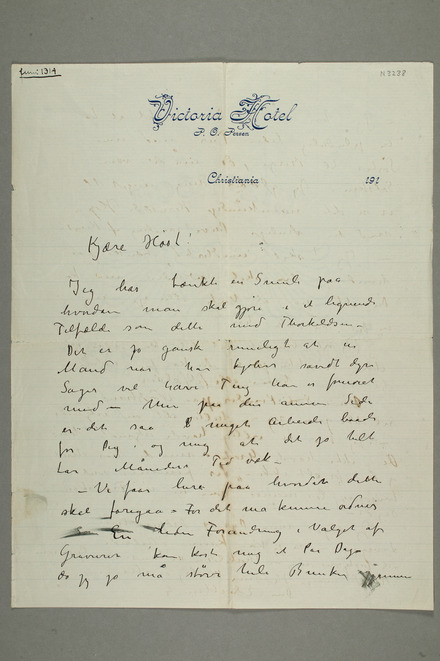 Juni 1914
N3228
Victoria Hotel
P. O. Persen
Christiania 191
Kjære Høst!
Jeg har tænkt en Smule paa
hvordan man skal gjøre i et lignende
Tilfælde som dette med Thorkildsen –
Det er jo ganske rimeligt at en
Mand naar han kjøber sandt dyre
Sager vil have Ting han er fornøiet
med – Men paa den anden Side
er det saa meget Arbeide baade
for Dig og mig at det jo helt
tar Maaneders Tid væk –
– Vi faar lure paa hvordan dette
skal foregaa – For det må kunne ordnes
En liden Forandring i Valget af
Gravurer kan koste mig et Par Dage
da jeg jo må større hele Bunken igjennem